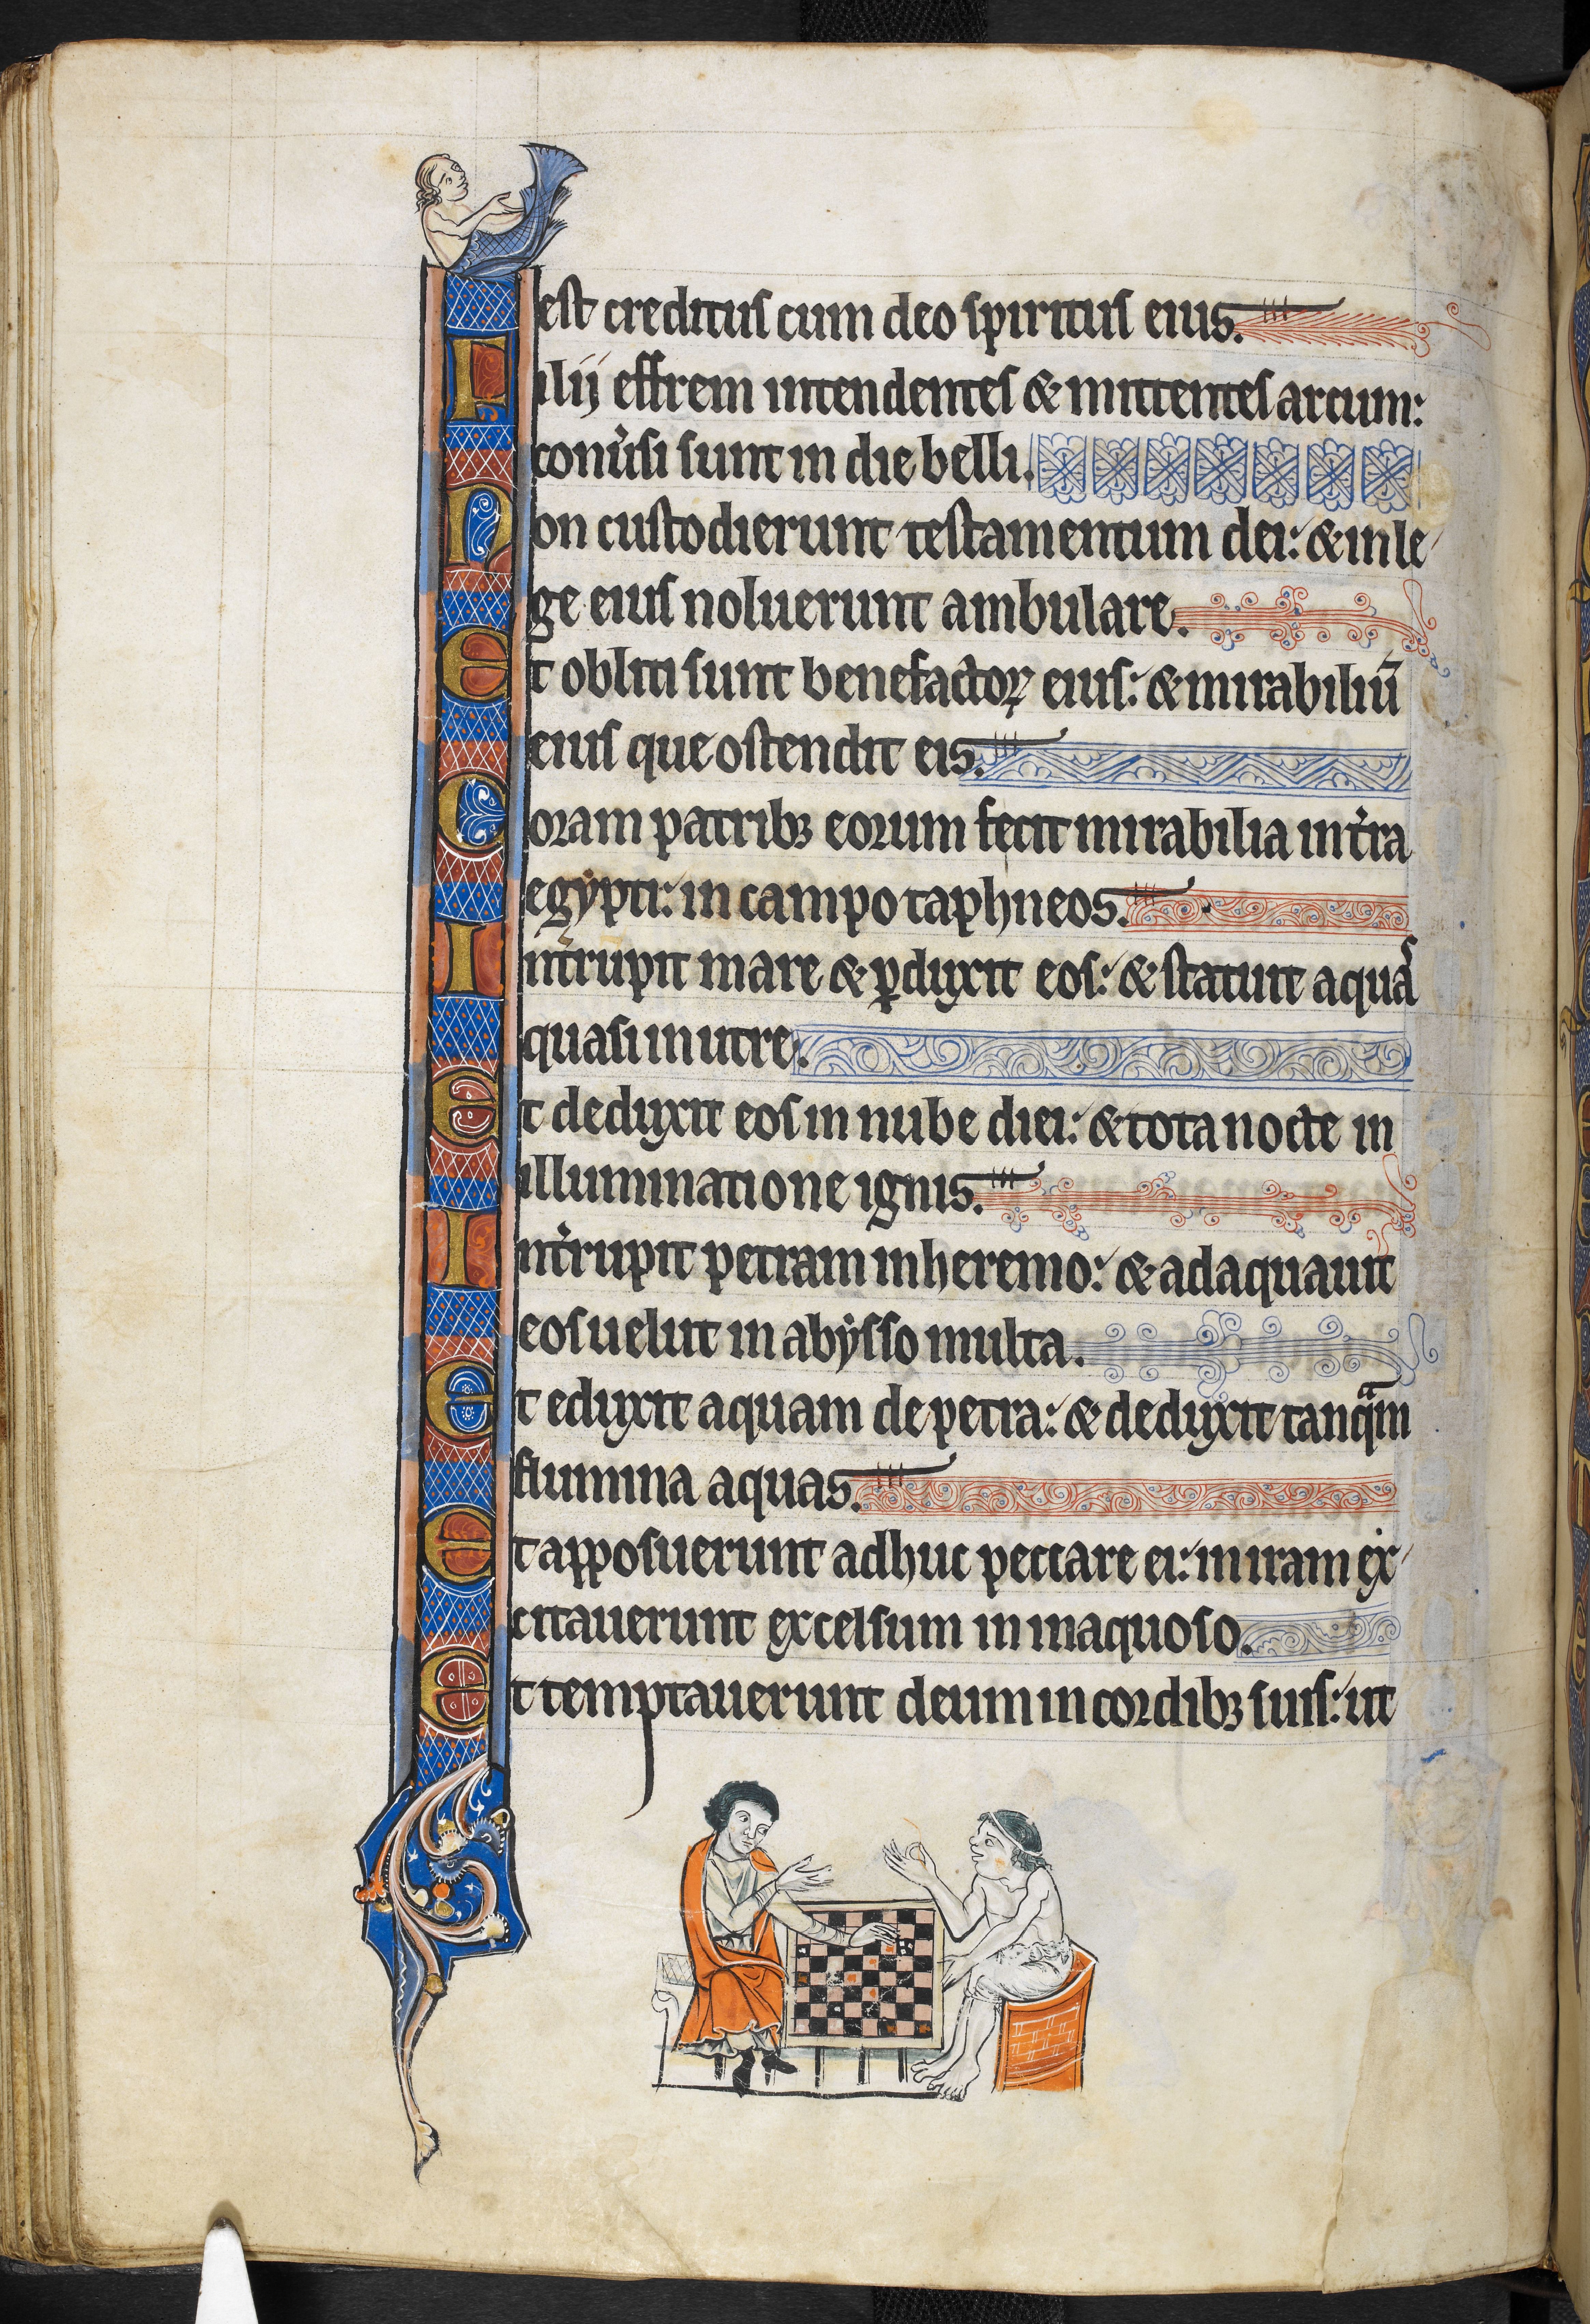 est creditus cum deo spiritus eius.
Filii effrem intendentes & mittentes arcum:
conu̾si sunt in die belli.
Non custodierunt testamentum dei: & in le
ge eius noluerunt ambulare.
Et obliti sunt benefactoꝝ eius: & mirabiliū
eius que ostendit eis.
Coram patribꝫ eorum fecit mirabilia in t̾ra
egypti: in campo taphneos.
Int̾rupit mare & ꝑduxit eos: & statuit aquas
quasi in utre.
Et deduxit eos in nube diei: & tota nocte in
illuminatione ignis.
Int̾rupit petram in heremo: & adaquauit
eos uelut in abysso multa.
Et eduxit aquam de petra: & deduxit tanqᵃm
flumina aquas.
Et apposuerunt adhuc peccare ei: in iram ex
citauerunt excelsum in inaquoso.
Et temptauerunt deum in cordibꝫ suis: ut